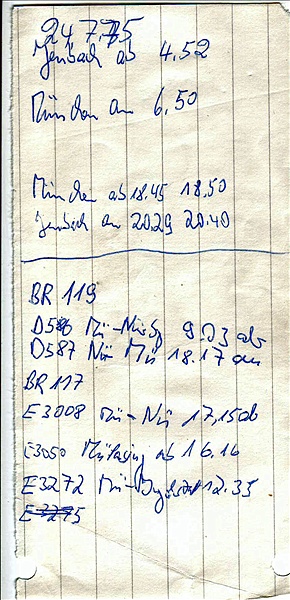 24.7.75
Jenbach ab 4.52
München an 6.50
München ab 18.45 18.50
Jenbach an 20.29 20.40
BR 119
D586 Mü-Nürbg 9.03 ab
D587 Nü Mü 18.17 an
BR 117
E3008 Mü-Nü 17,15 ab
E3050 ab 16.16
E3272 Mü- 12.35
E3275